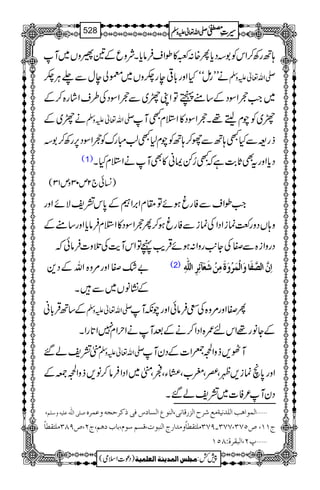 سیرتِ مصطفیٰ صلی اللہ تعالیٰ علیہ وسلم
528
ہاتھ رکھ کر اس کو بوسہ دیا پھر خانہ کعبہ کا طواف فرمایا۔ شروع کے تین پھیروں میں آپ
صلی اللہ تعالیٰ علیہ وسلم نے ’’رمل‘‘ کیا اور باقی چار چکروں میں معمولی چال سے چلے ہر چکر
میں جب حجرِ اسود کے سامنے پہنچتے تو اپنی چھڑی سے حجرِ اسود کی طرف اشارہ کر کے
چھڑی کو چوم لیتے تھے۔ حجرِ اسود کا استلام کبھی آپ صلی اللہ تعالیٰ علیہ وسلم نے چھڑی کے
ذریعہ سے کیا کبھی ہاتھ سے چھو کر ہاتھ کو چوم لیا کبھی لب مبارک کو حجرِ اسود پر رکھ کر بوسہ
دیا اور یہ بھی ثابت ہے کہ کبھی رُکن یمانی کا بھی آپ نے استلام کیا۔ (1)
(نسائی ج۲ ص۳۰ و ص۳۱)
جب طواف سے فارغ ہوئے تو مقام ابراہیم کے پاس تشریف لائے اور
وہاں دو رکعت نماز ادا کی نماز سے فارغ ہو کر پھر حجرِ اسود کا استلام فرمایا اور سامنے کے
دروازہ سے صفا کی جانب روانہ ہوئے قریب پہنچے تو اس آیت کی تلاوت فرمائی کہ
اِنَّ الصَّفَا وَ الْمَرْوَةَ مِنْ شَعَآئِرِ اللّٰهِ (2) بے شک صفا اور مروہ اللہ کے دین کے
نشانوں میں سے ہیں۔
پھر صفا اور مروہ کی سعی فرمائی اور چونکہ آپ صلی اللہ تعالیٰ علیہ وسلم کے ساتھ قربانی
کے جانور تھے اس لئے عمرہ ادا کرنے کے بعد آپ نے احرام نہیں اتارا۔
آٹھویں ذوالحجہ جمعرات کے دن آپ صلی اللہ تعالیٰ علیہ وسلم منیٰ تشریف لے گئے
اور پانچ نمازیں ظہر، عصر، مغرب، عشاء، فجر، منیٰ میں ادا فرما کر نویں ذوالحجہ جمعہ کے
دن آپ عرفات میں تشریف لے گئے۔
......المواهب اللدنیة مع شرح الزرقانی،النوع السادس فی ذکر حجه وعمره صلی الله علیه وسلم،
ج۱۱،ص۳۷۵،۳۷۷۔۳۷۹ملتقطاً ومدارج النبوت،قسم سوم،باب دهم،ج۲،ص۳۸۹ملتقطاً
......پ۲،البقرة:۱۵۸
پیش کش: مجلس المدینة العلمیة (دعوتِ اسلامی)